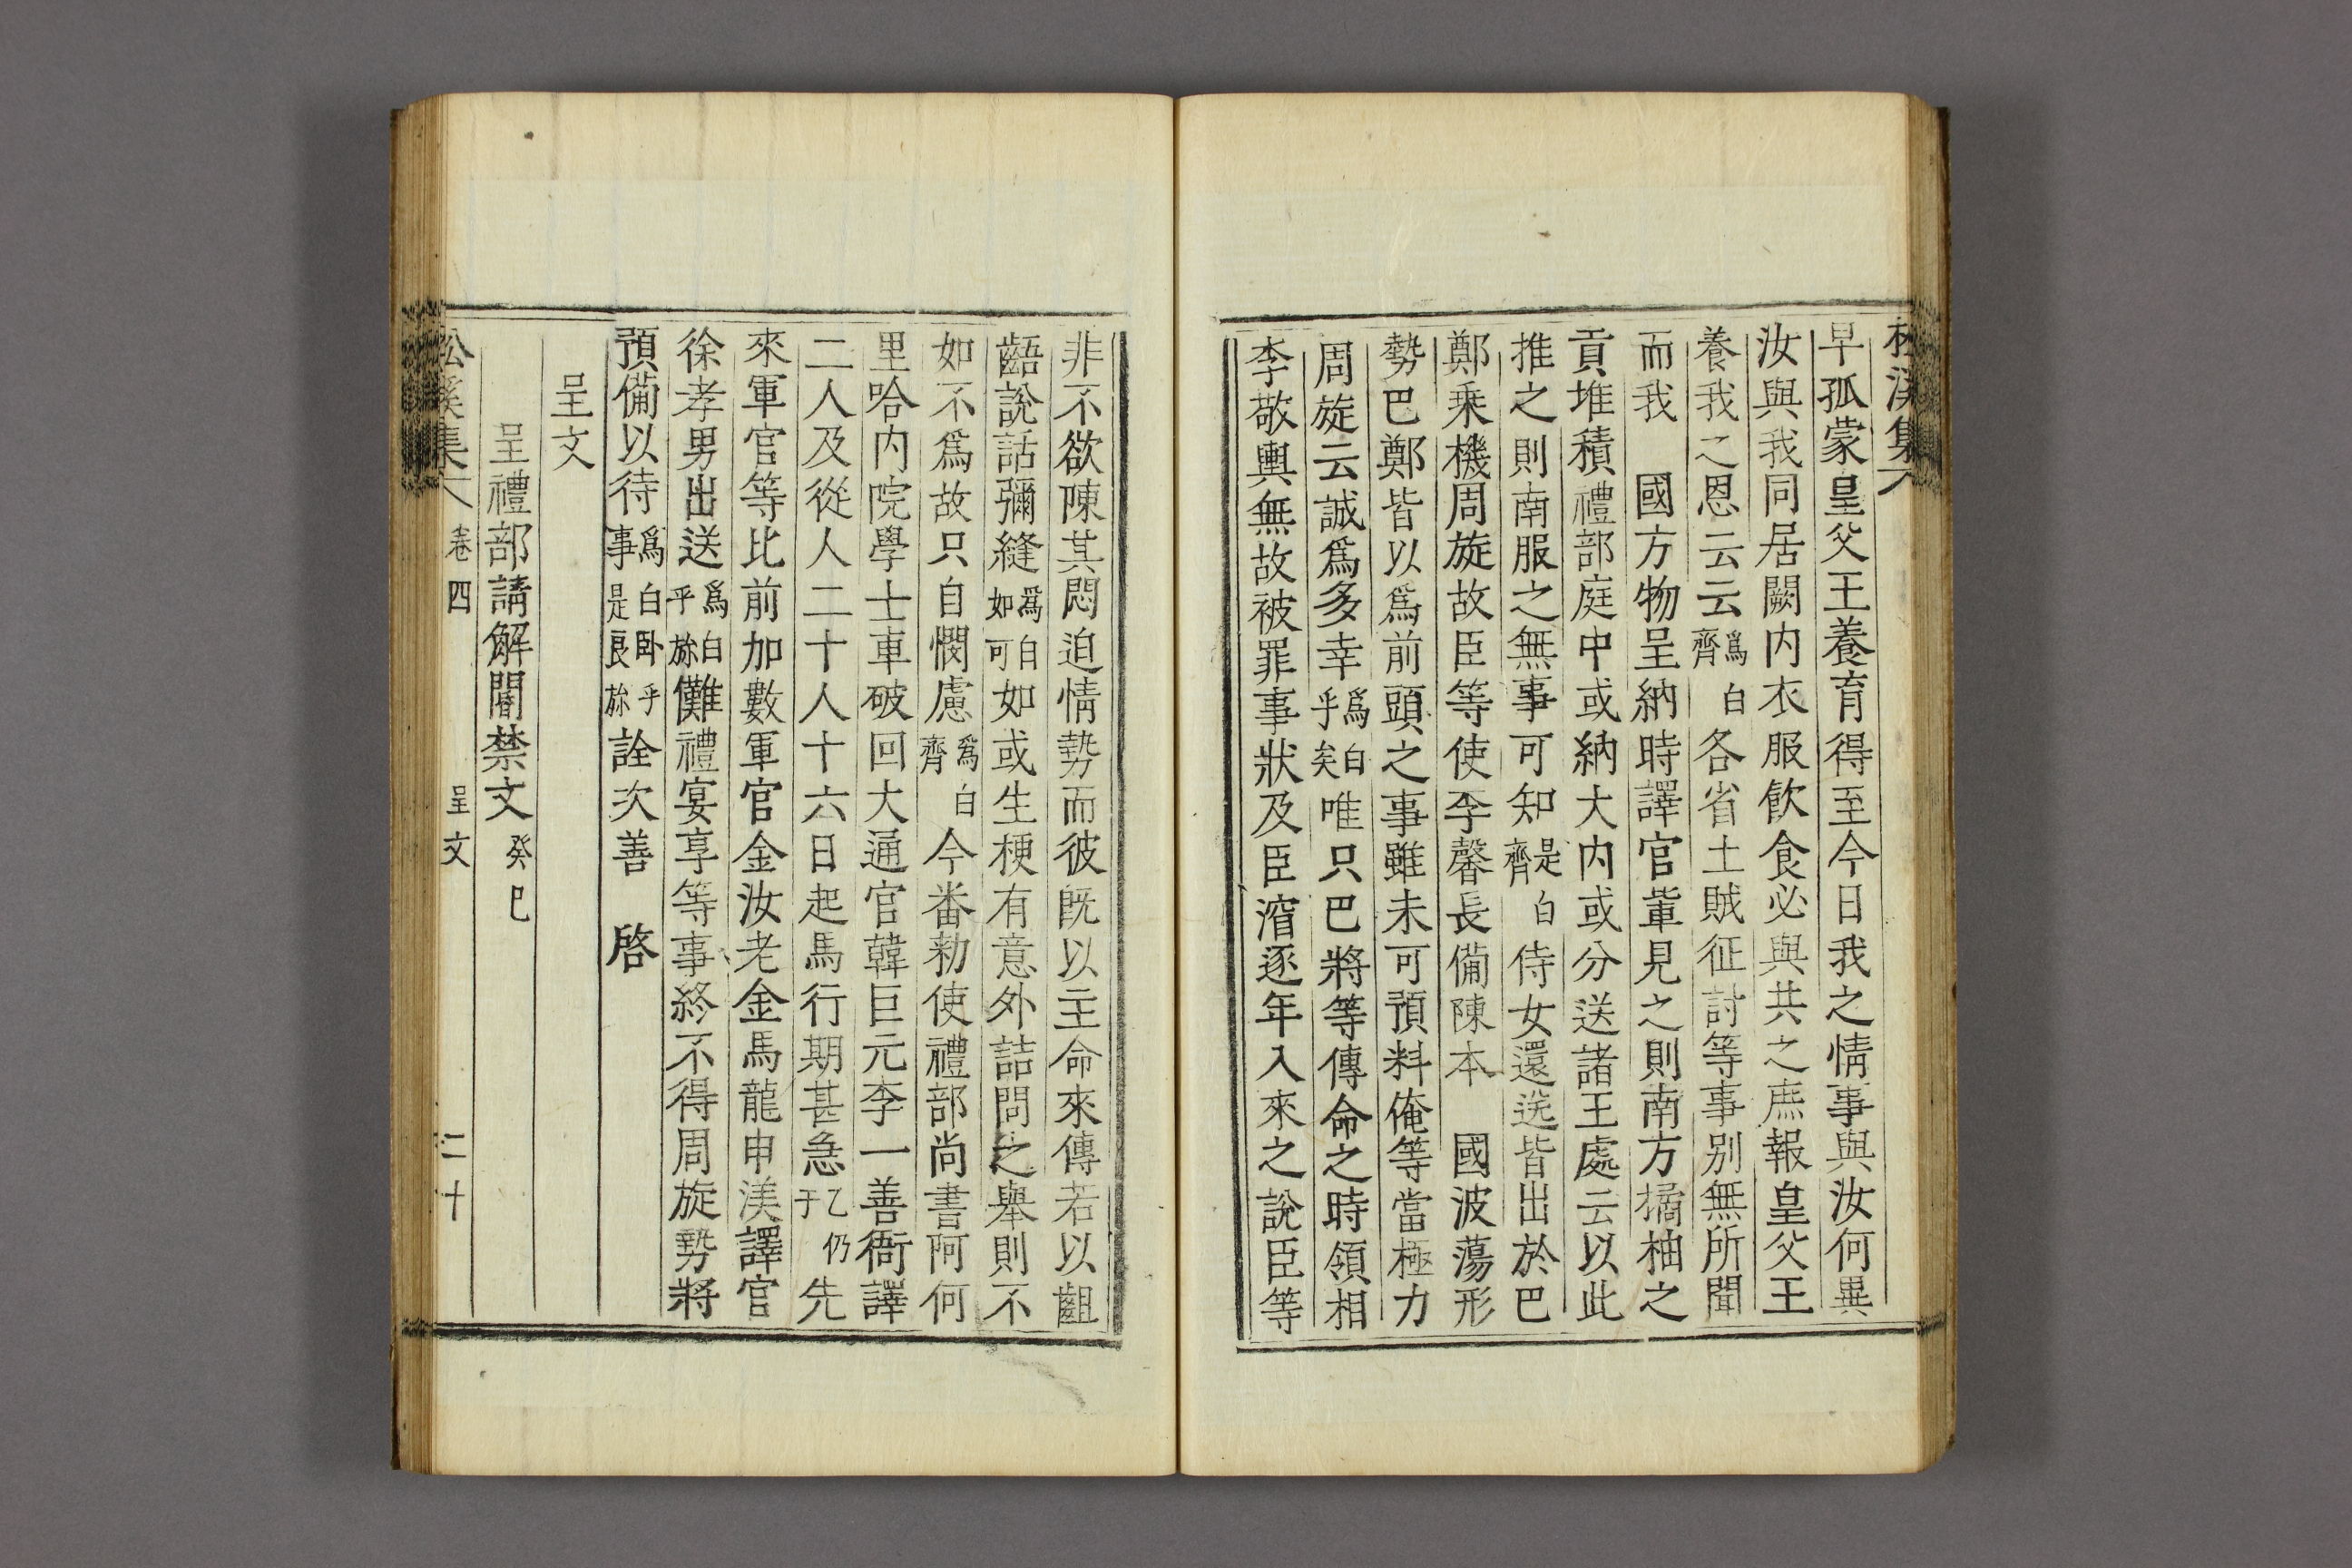 早孤蒙皇父王養育得至今日我之情事與汝何異
汝與我同居闕内衣服飮食必與共之庶報皇父王
養我之恩云云爲白齊各省土賊征討等事别無所聞
而我　國方物呈納時譯官軰見之則南方橘柚之
貢堆積禮部庭中或納大内或分送諸王處云以此
推之則南服之無事可知是白齊侍女還送皆出於巴
鄭乗機周旋故臣等使李馨長備陳本　國波蕩形
勢巴鄭皆以爲前頭之事雖未可預料俺等當極力
周旋云誠爲多幸爲白乎矣唯只巴將等傳命之時領相
李敬輿無故被罪事狀及臣㴤逐年入來之說臣等
非不欲陳其悶迫情勢而彼既以主命來傳若以齟
齬說話彌縫爲白如可如或生梗有意外詰問之舉則不
如不爲故只自憫慮爲白齊今番勑使禮部尚書阿何
里哈内院學士車破回大通官韓巨元李一善衙譯
二人及從人二十人十六日起馬行期甚急乙仍于先
來軍官等比前加數軍官金汝老金馬龍申渼譯官
徐孝男出送爲白乎旀儺禮宴享等事終不得周旋勢將
預備以待爲白臥乎事是良旀詮次善　啓
呈文
呈禮部請解閽禁文癸巳
松溪集　卷四　呈文　二十